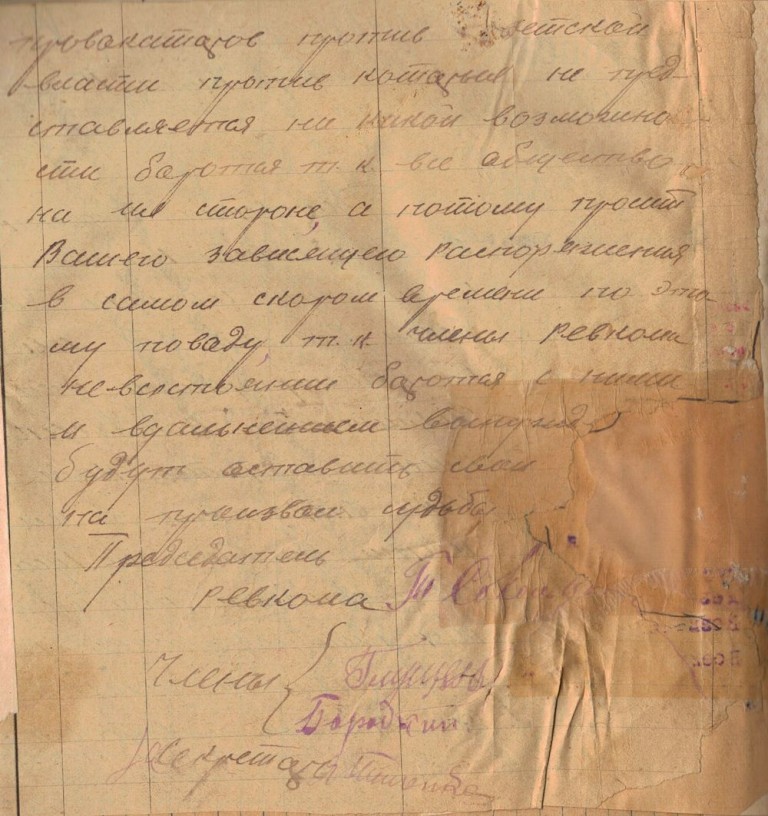 провакатаров против
власти против которые не пред-
ставляется ни какой возможно
сти баротся т.к. все общество
на их стороне, а потому просит
Вашего зависящего распоряжения
в самом скором времени по эта
му поваду, т.к. члены Ревкома
невсостоянии баротся с ними
и вдальнейшем
будут оставить свои
на произвол судьбы
Председатель
Ревкома
Члены
Бородкий
Секретарь